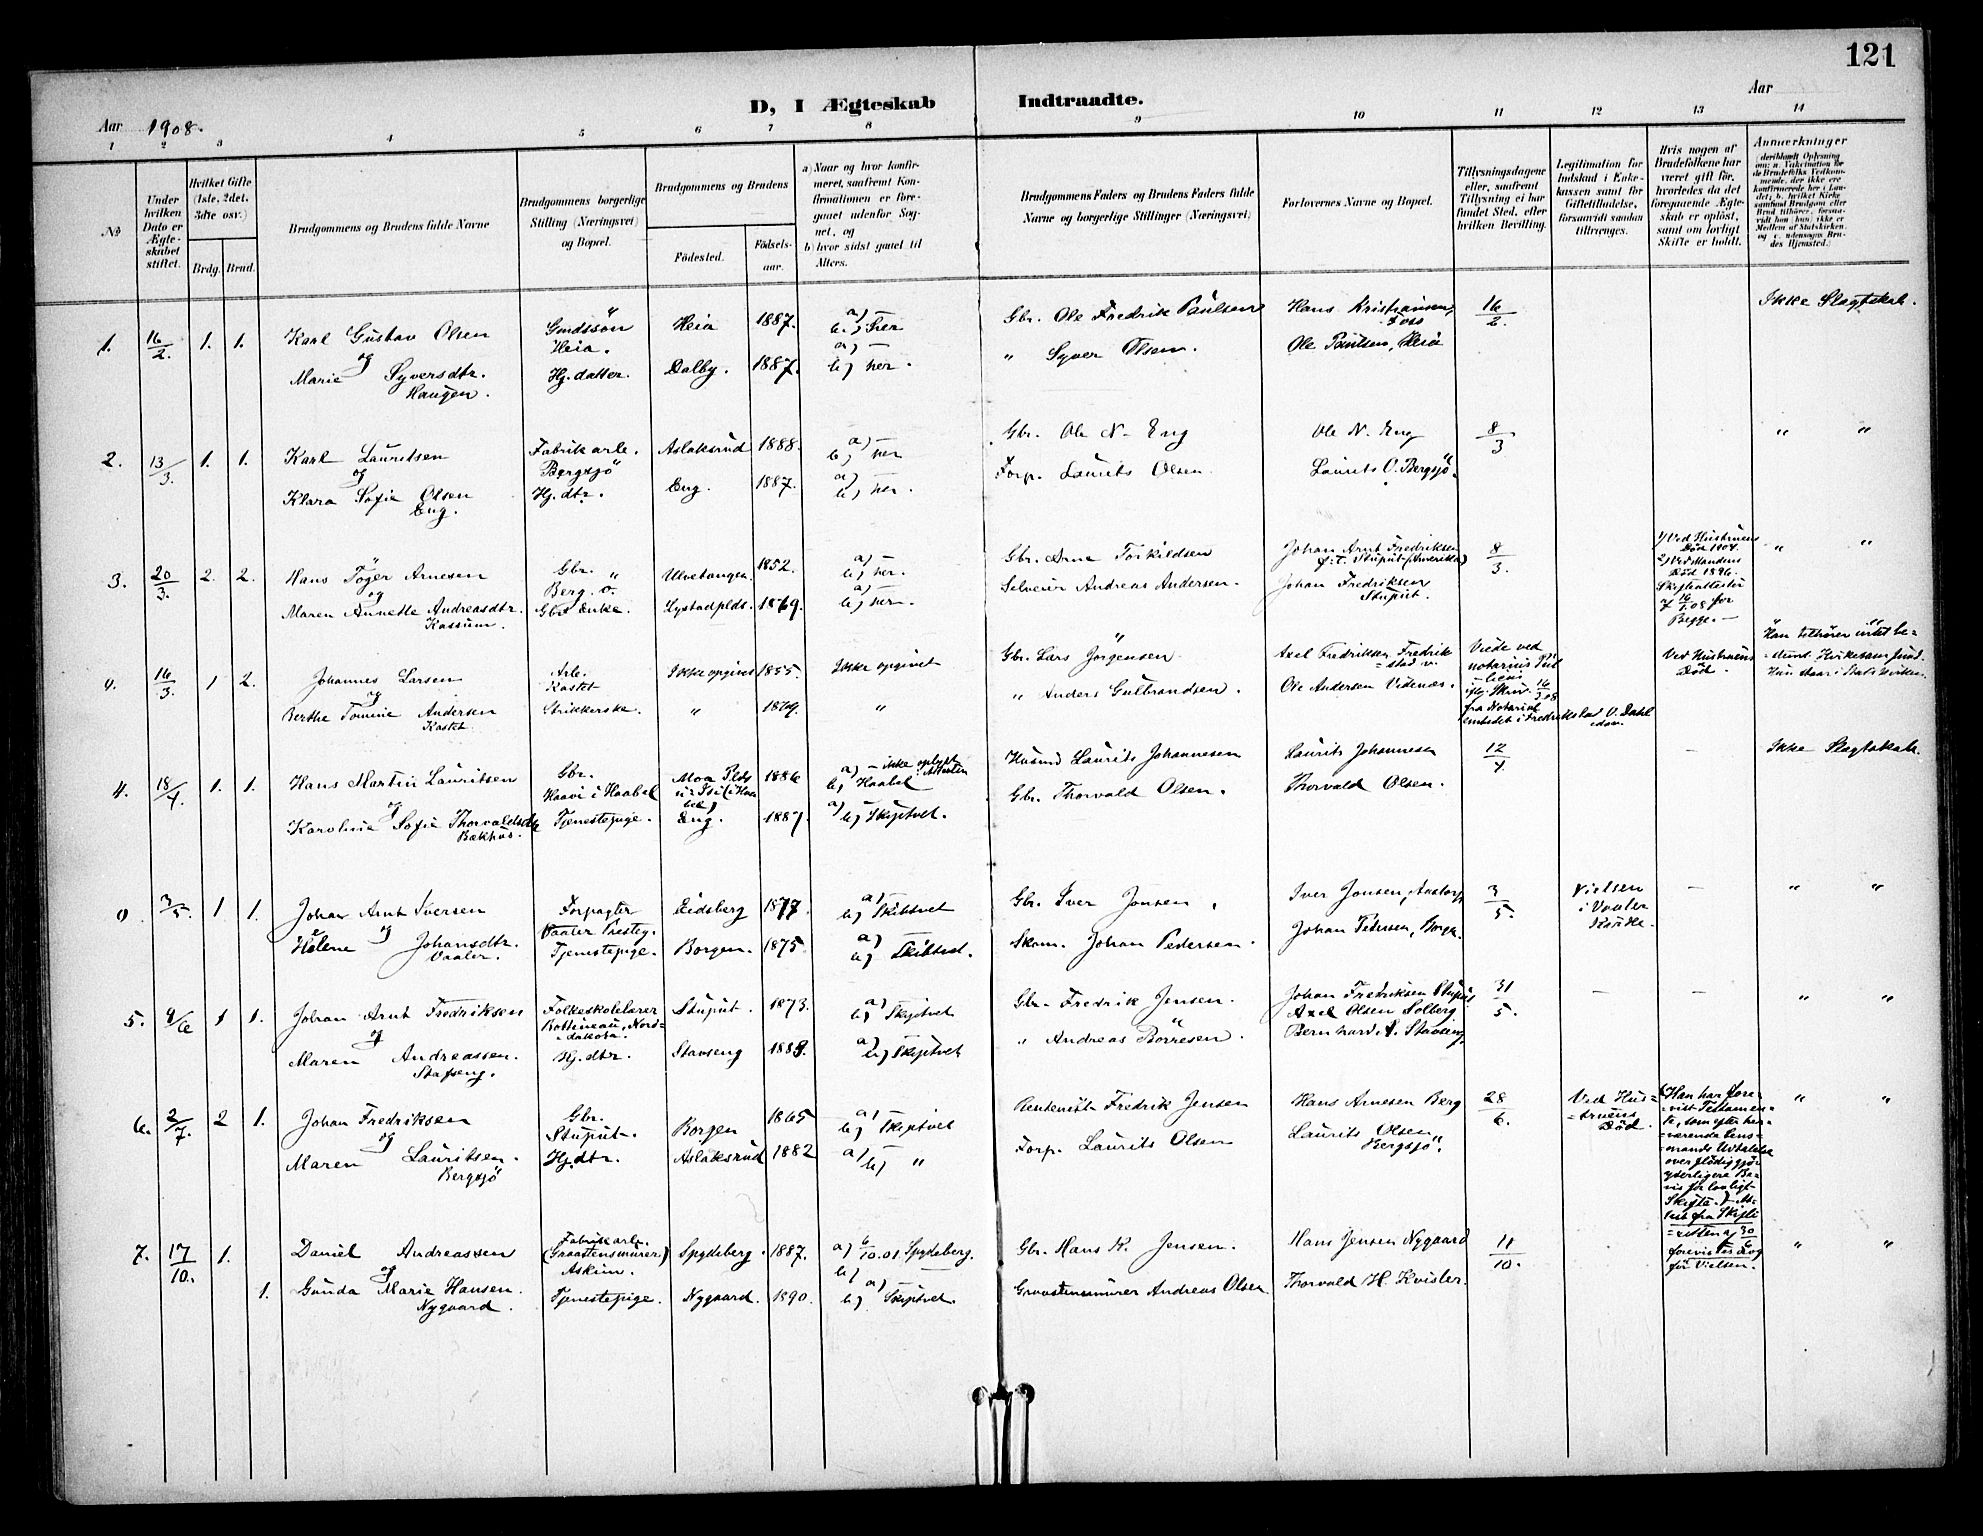 121
D, I Ægteskab Indtraadte.
Aar 1908. Aar
1 2 3 4 5 6 7 8 9 10 11 12 13 14
No
Under hvilken Dato er Ægteskabet stiftet.
Hvilket Gifte (1ste, 2det, 3die osv.)
Brdg. Brud.
Brudgommens og Brudens fulde Navne
Brudgommens borgerlige Stilling (Næringsvei) og Bopæl.
Brudgommens og Brudens
Fødested. Fødsels-aar.
a) Naar og hvor konfirmeret, saafremt Konfirmationen er foregaaet udenfor Sognet, og
b) hvor sidst gaaet til Alters.
Brudgommens Faders og Brudens Faders fulde Navne og borgerlige Stillinger (Næringsvei)
Forlovernes Navne og Bopæl.
Tillysningsdagene eller, saafremt Tillysning ei har fundet Sted, efter hvilken Bevilling.
Legitimation for Indskud i Enkekassen samt for Giftetilladelse, forsaavidt saadan tiltrænges.
Hvis nogen af Brudefolkene har været gift før, hvorledes da det foregaaende Ægteskab er opløst, samt om lovligt Skifte er holdt.
Anmærkninger
1. 16/2. 1. 1. Karl Gustav Olsen Gaardssøn Heia 1887. a) — Gbr. Ole Fredrik Paulsen Hans Kristiansen, Foss 16/2. Ikke Slægtskab.
og Heia. b) her
Marie Syversdtr. Hj. datter. Dalby. 1887. a) — b) her. " Syver Olsen. Ole Paulsen, Heia
Haugen.
2. 13/3. 1. 1. Karl Lauritsen Fabrikarb. Aslaksrud 1888. a) — b) her Gbr. Ole N. Eng Ole N. Eng 8/3 " "
og Bergsjö
Klara Sofie Olsen Hj. dtr. Eng. 1887. a) — b) her. Forp. Laurits Olsen. Laurits O. Bergsjö.
Eng.
3. 20/3. 2. 2. Hans Töger Arnesen Gbr. Ulvetangen 1852. a) — b) her. Gbr. Arne Torkildsen Johan Arnt Fredriksen 8/3. 1) Ved Hustruens Död 1904. " "
og Berg. ö. f. t. Stuput (Amerika) 2) Ved Mandens Död 1896.
Maren Annette Andreasdtr. Gbr. Enke. Lystadplds. 1869. a) — b) her. Selveier Andreas Andersen. Johan Fredriksen Stuput. Skifteattester af 16/1 08 for Begge. —
Kassum.
4. 16/3. 1 2. Johannes Larsen Arb. Ikke opgivet 1855. Ikke opgivet Gbr. Lars Jörgensen Axel Fredriksen Fredrikstad v. Viede ved notarius Publicus iflg. Skriv. 16/3 08 fra Notarialembedet i Fredrikstad V. Dahl Ved Hustruens Död. Han tilhører intet bestemt Kirkesamfund. Hun staar i Statskirken.
og Kastet
Berthe Tomine Andersen Strikkerske. " 1879. " " Anders Gulbrandsen. Ole Andersen Videnæs.
Kastet.
4. 18/4. 1. 1. Hans Martin Lauritsen Gbr. Moa Plds 1886 a) — ikke oplyst Husmd Laurits Johannesen Laurits Johannesen 12/4 — Ikke Slægtskab.
og Haavi i Haabøl b) Haabøl
Karoline Sofie Thorvaldsdtr Tjenestepige. Eng. 1887. a) — b) Skiptvet. Gbr. Thorvald Olsen. Thorvald Olsen.
Bækhus.
0 3/5. 1 1. Johan Arnt Iversen Forpagter Eidsberg 1877. a) — b) Skibtvet Gbr. Iver Jonsen. Iver Jonsen, 3/5. Vielsen i Vaaler Kirke. — " "
og Vaaler Presteg.
Helene Johansdtr. Tjenestepige. Borgen. 1875 a) — b) Skibtvet. Skom. Johan Pedersen. Johan Pedersen, Borgen.
Vaaler.
5. 9/6 1 1. Johan Arnt Fredriksen Folkeskolelærer Stuput. 1873. a) — b) Skiptvet Gbr. Fredrik Jensen. Johan Fredriksen Stuput 31/5. — — " "
og Bottineau, Norddakota. Axel Olsen Solberg.
Maren Andreassen. Hj. dtr. Stavseng 1888. a) — b) Skiptvet " Andreas Börresen. Bernhard A. Stavseng,
Stafseng.
6. 2/7. 2 1. Johan Fredriksen Gbr. Borgen 1865 a) — b) Skiptvet Rentenist Fredrik Jensen Hans Arnesen Berg 28/6. Ved Hustruens Död. Han har forevist Testamente, som efter herværende Lensmands Udtalelse overflödiggjör yderligere Bevis for lovligt Skifte. Attest fra Skifteretten af 30/6 forevistes dog för Vielsen. " "
og Stuput.
Maren Lauritsen. Hj. dtr. Aslaksrud 1882 a) — b) " Forp. Laurits Olsen Laurits Olsen Bergsjö.
Bergsjö
7. 17/10. 1. Daniel Andreassen Fabrikarb. (Graastensmurer) Spydeberg. 1887. a) 6/10.01. Spydeberg. Gbr. Hans K. Jensen. Hans Jensen Nygaard 11/10. " "
og Askim. b)
1. Gunda Marie Hansen. Tjenestepige. Nygaard. 1890. a) — b) Skiptvet. Graastensmurer Andreas Olsen Thorvald H. Kvisler.
Nygaard.